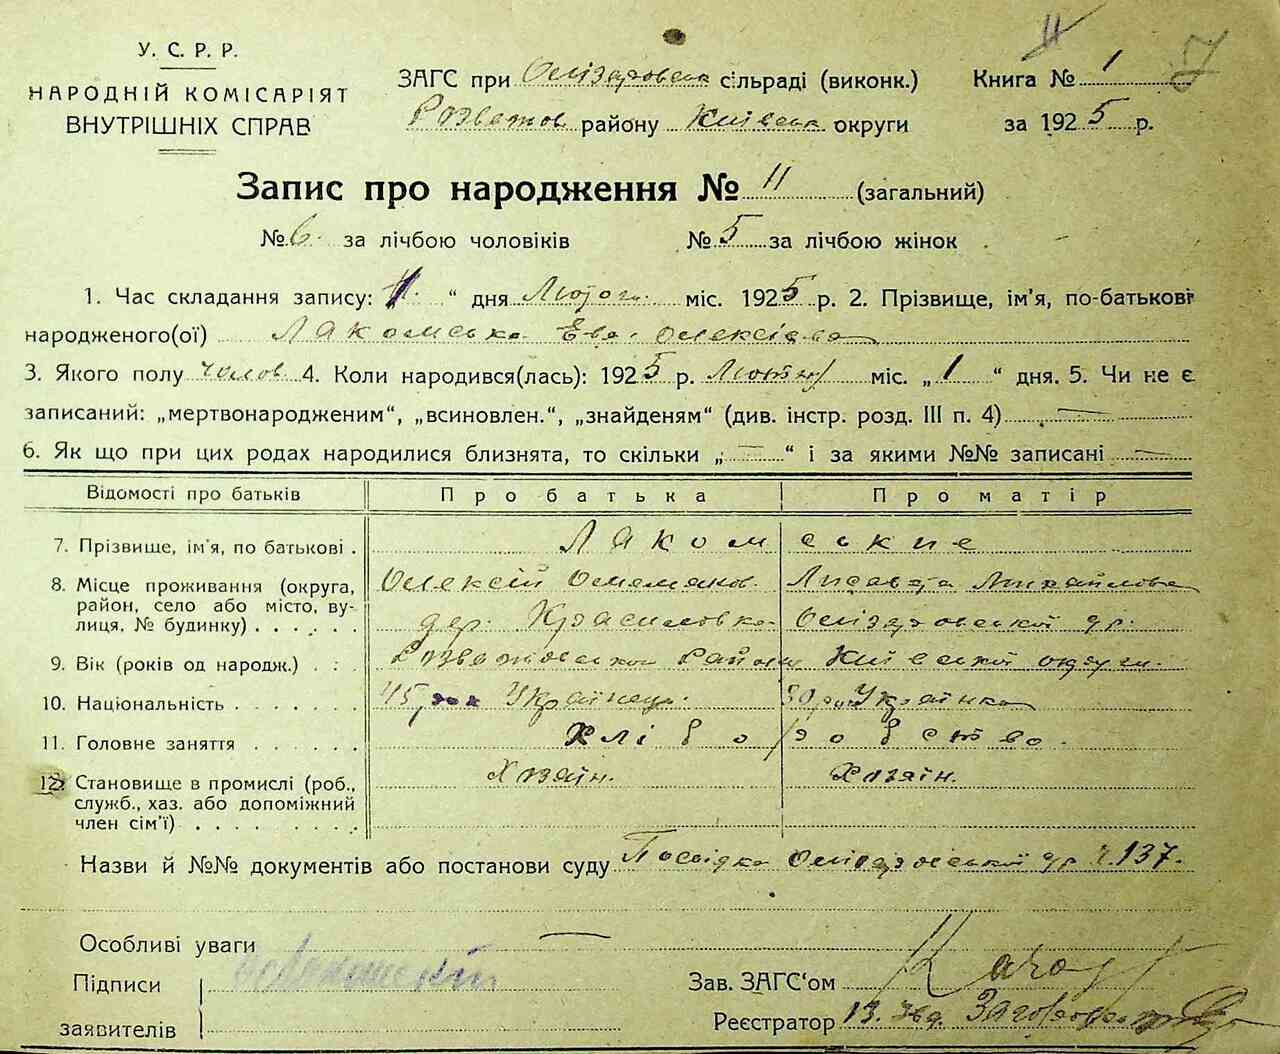 У. С. Р. Р.
НАРОДНІЙ КОМІСАРІЯТ
ВНУТРІШНІХ СПРАВ
ЗАГС при сільраді (виконк.)
Розважов району Київськ округи
Книга № 1
за 1925 р.
7
Запис про народження № 11 (загальний)
№ 6. за лічбою чоловіків № 5 за лічбою жінок
1. Час складання запису: „11“ дня Лютого міс. 1925 р. 2. Прізвище, ім'я, по-батькові
народженого(ої) Лакомська Ева Олексіева
3. Якого полу чолов 4. Коли народився(лась): 1925 р. Лютого міс. „1“ дня. 5. Чи не є
записаний: „мертвонародженим“, „всиновлен.“, „знайденям“ (див. інстр. розд. III п. 4) —
6. Як що при цих родах народилися близнята, то скільки „—“ і за якими №№ записані —
Відомості про батьків Про батька Про матір
7. Прізвище, ім'я, по батькові . Лакомські
8. Місце проживання (округа, Олексій Лисавета Михайлова
район, село або місто, ву- дер. Красиловка
лиця, № будинку)
9. Вік (років од народж.) Розважовської Района Київської округи.
10. Національність 45 рок Українець. 30 рок Українка
11. Головне заняття Хлібо/робство.
12. Становище в промислі (роб., Хозяїн. Хозяїн.
служб., хаз. або допоміжний
член сім'ї)
Назви й №№ документів або постанови суду Посвідка ч. 137.
Особливі уваги —
Підписи Зав. ЗАГС'ом
заявителів Реєстратор